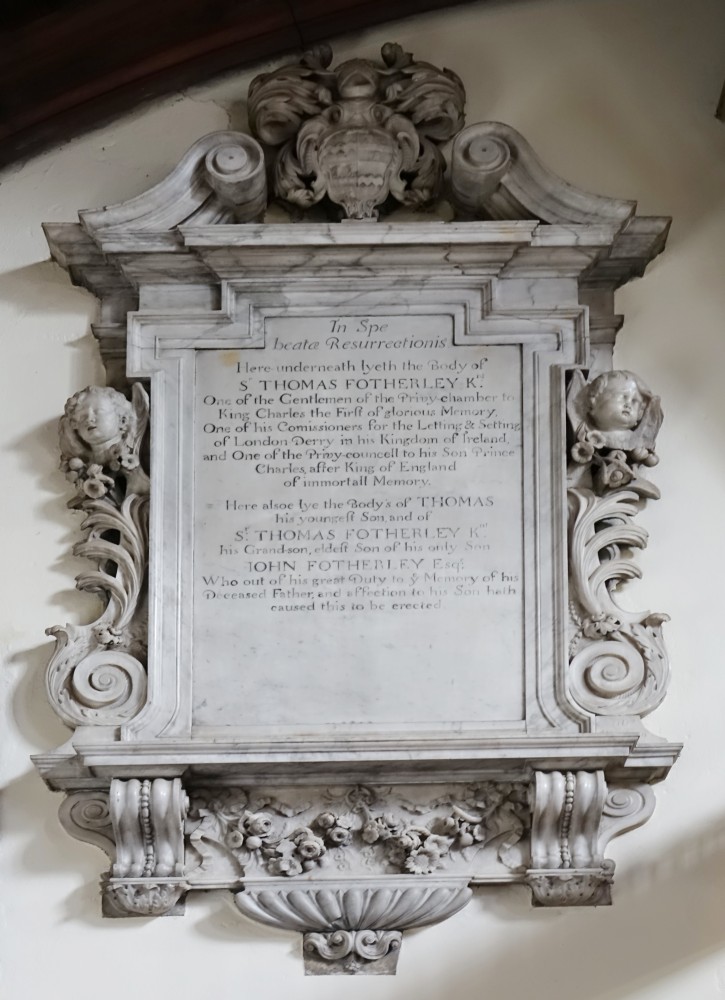 In Spe
beatæ Resurrectionis
Here underneath lyeth the Body of
Sr. THOMAS FOTHERLEY Kt.
One of the Gentlemen of the Privy-chamber to
King Charles the Firſt of glorious Memory,
One of his Comissioners for the Letting & Setting
of London Derry in his Kingdom of Ireland,
and One of the Privy-councell to his Son Prince
Charles, after King of England
of immortall Memory.
Here alsoe lye the Body's of THOMAS
his youngeſt Son, and of
Sr. THOMAS FOTHERLEY Kt.
his Grand-son, eldeſt Son of his only Son
IOHN FOTHERLEY Esqr.
Who out of his great Duty to ye Memory of his
Deceased Father, and affection to his Son hath
caused this to be erected